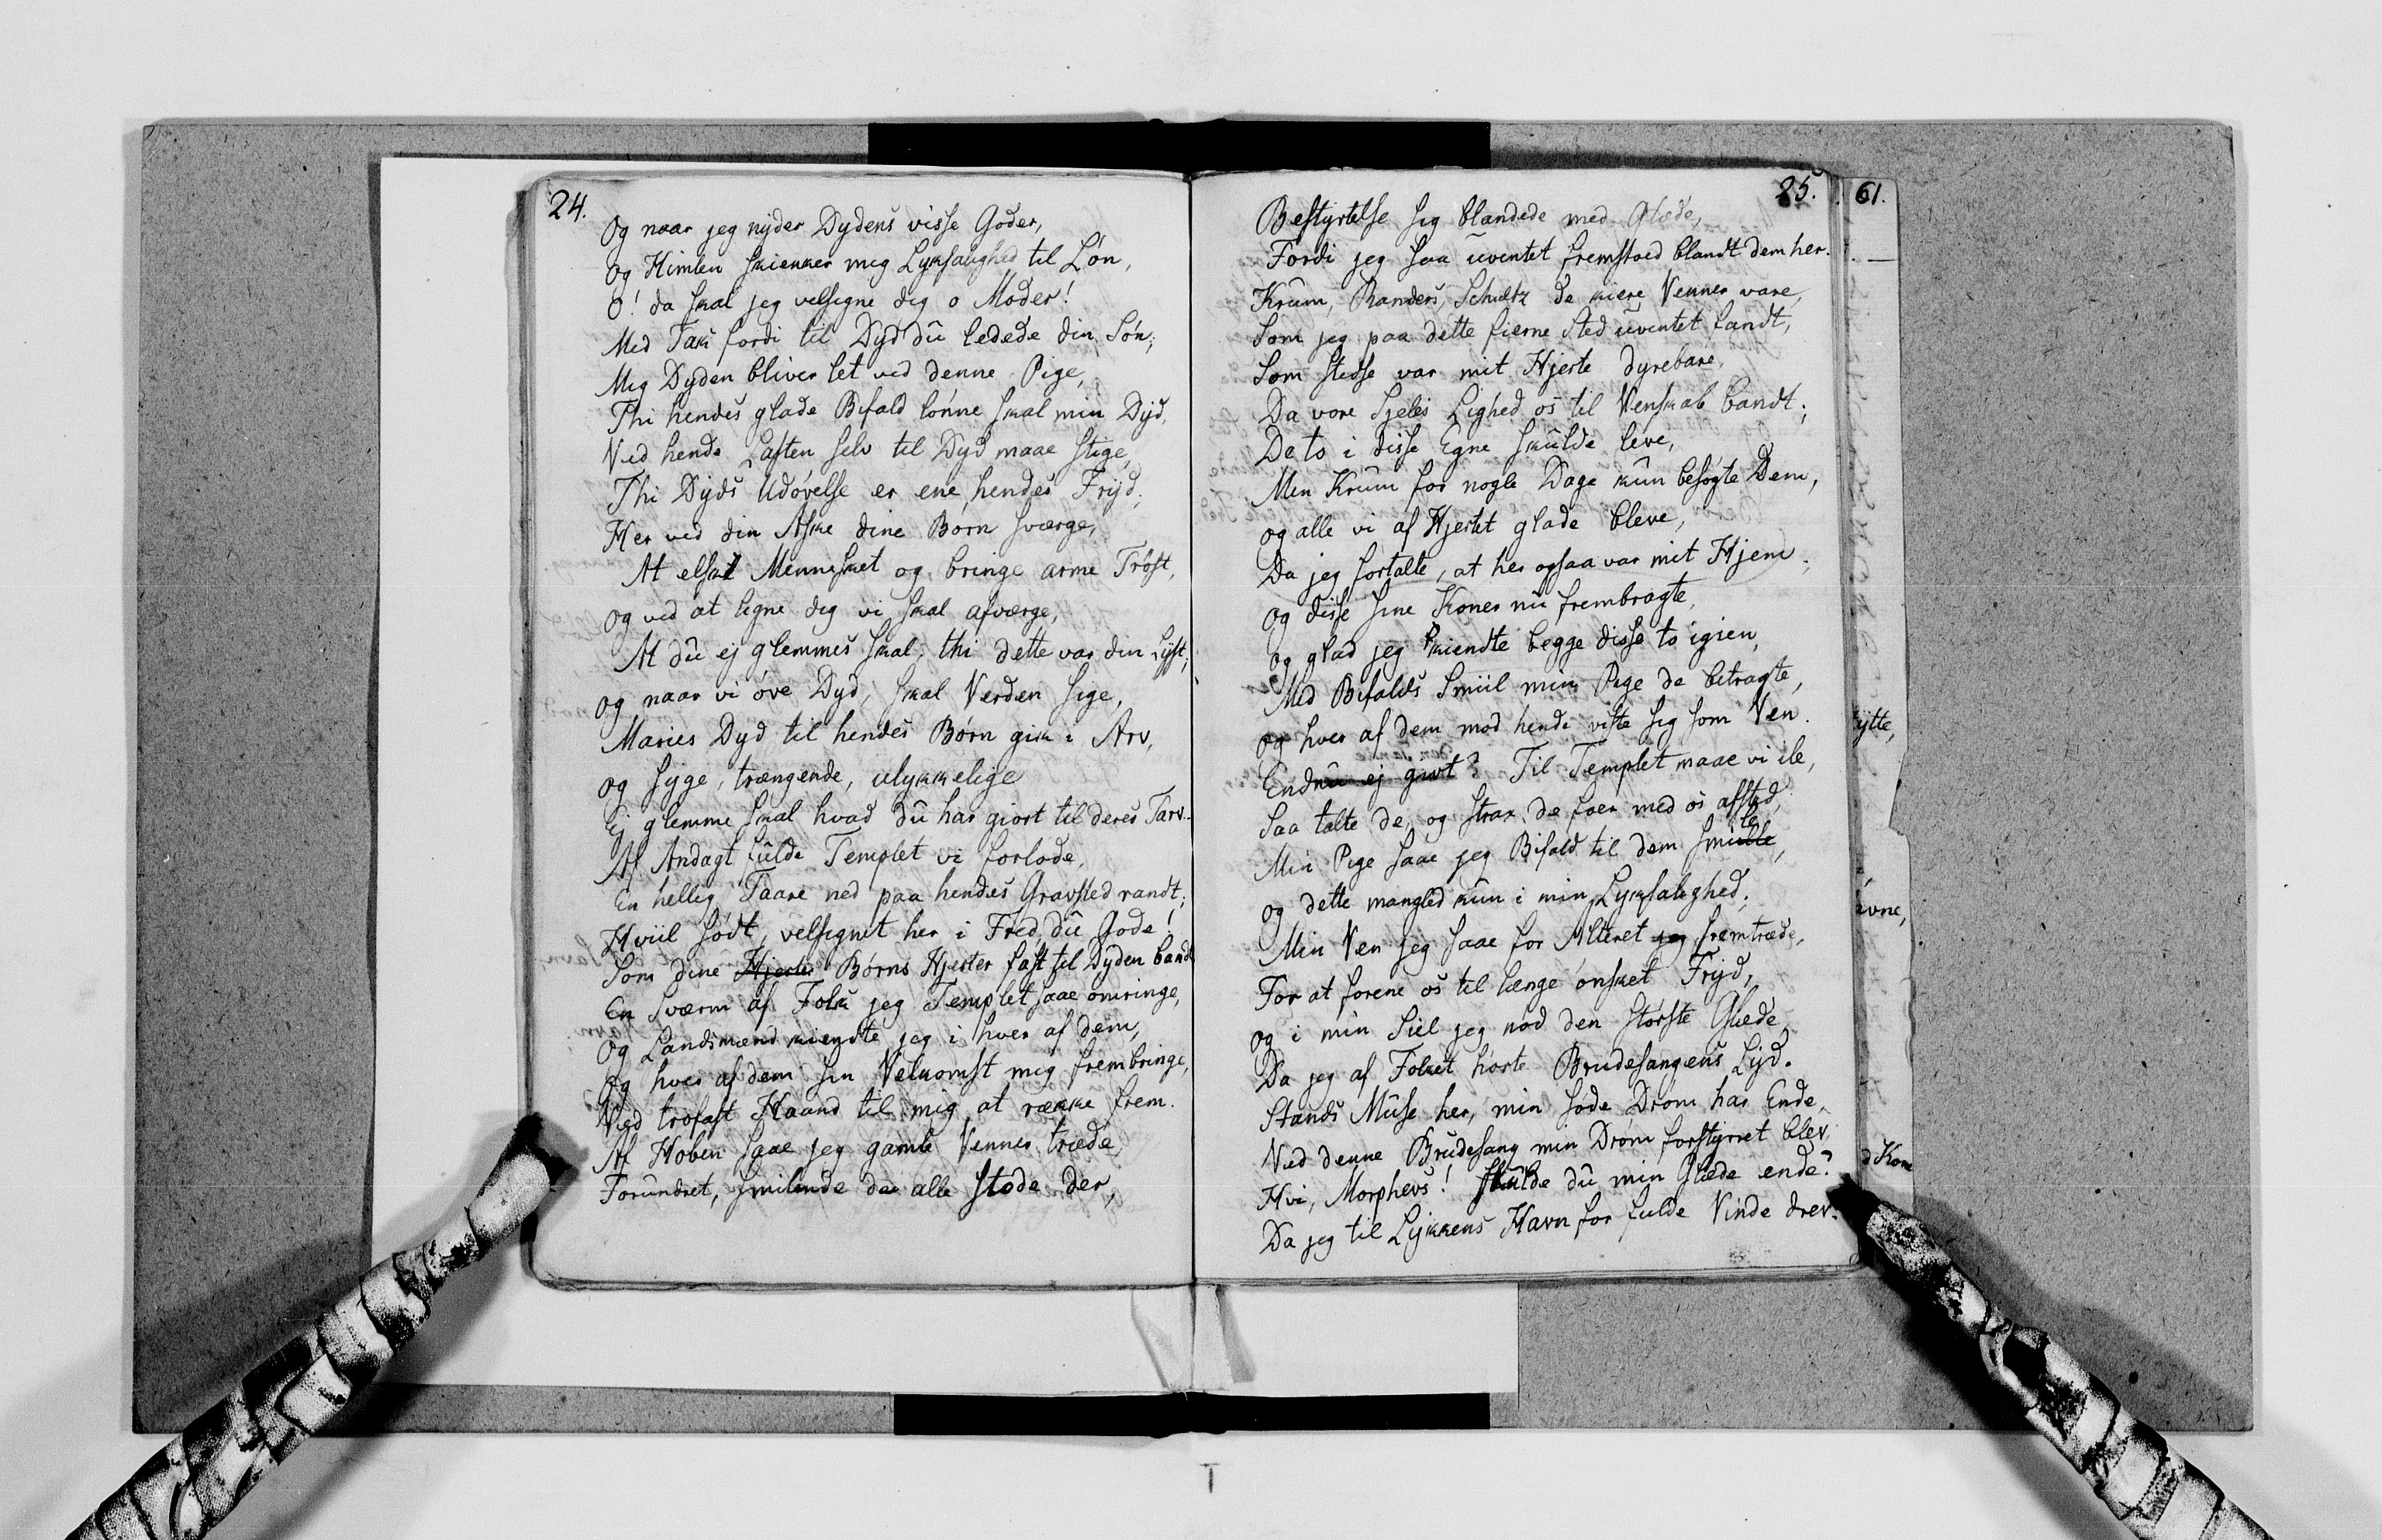 24.
Og naar jeg nyder Dydens visse Goder,
Og Himlen skienker mig Lyksalighed til Løn,
O! da skal jeg velsigne dig o Moder!
Med Tak fordi til Dyd du ledede din Søn;
Mig Dyden bliver let ved denne Pige,
Thi hendes glade Bifald lønne skal min Dyd,
Ved hende Lasten selv til Dyd maae stige,
Thi Dyds Udøvelse er ene hendes Fryd;
Her ved din Aske dine Børn sværge,
At elske Mennesket og bringe arme Trøst,
og ved at ligne dig vi skal afværge,
At du ej glemmes skal; thi dette var din Lyst;
og naar vi øve Dyd, skal Verden sige,
Maries Dyd til hendes Børn gik i Arv,
og syge, trængende, ulykkelige
Ej glemme skal hvad du har giort til deres Tarv.
Af Andagt fulde Templet vi forlode,
En hellig Taare ned paa hendes Gravsted randt;
Hviil sødt, velsignet her i Fred, du Gode!
Som dine Hjerter Børns Hjerter fast til Dyden bandt
En Sværm af Folk jeg Templet saae omringe,
Og Landsmænd kiendte jeg i hver af dem,
Og hver af dem sin Velkomst mig frembringe,
Ved trofast Haand til mig at række frem.
Af Hoben saae jeg gamle Venner træde,
Forundret, smilende da alle stode der,
25.
Bestyrtelse sig blandede med Glæde,
Fordi jeg saa uventet fremstoed blandt dem her.
Krum, Randers, Schultz de kiere Venner vare,
Som jeg paa dette fierne Sted uventet fandt,
Som stedse var mit Hjerte dyrebare,
Da vore Sjeles Lighed os til Venskab bandt;
De to i disse Egne skulde leve,
Men Krum for nogle Dage kun besøgte Dem,
og alle vi af Hjertet glade bleve,
Da jeg fortalte, at her ogsaa var mit Hjem;
og disse sine Koner nu frembragte,
og glad jeg kiendte begge disse to igien,
Med Bifalds Smiil min Pige de betragte,
og hver af dem mod hende viste sig som Ven.
Endnu ej givt? Til Templet maae vi ile,
Saa talte de, og strax de foer med os afsted,
Min Pige saae jeg Bifald til dem smile,
og dette mangled kun i min Lyksalighed;
Min Ven jeg saae for Alteret jeg fremtræde,
For at forene os til længe ønsket Fryd,
og i min Siel jeg nød den største Glæde
Da jeg af Folket hørte Brudesangens Lyd.
Stands Muse her, min søde Drøm har Ende,
Ved denne Brudesang min Drøm forstyrret blev;
Hvi, Morpheus! skulde du min Glæde ende?
Da jeg til Lykkens Havn for fulde Vinde drev.
61.
ytte,
avne,
d Kone